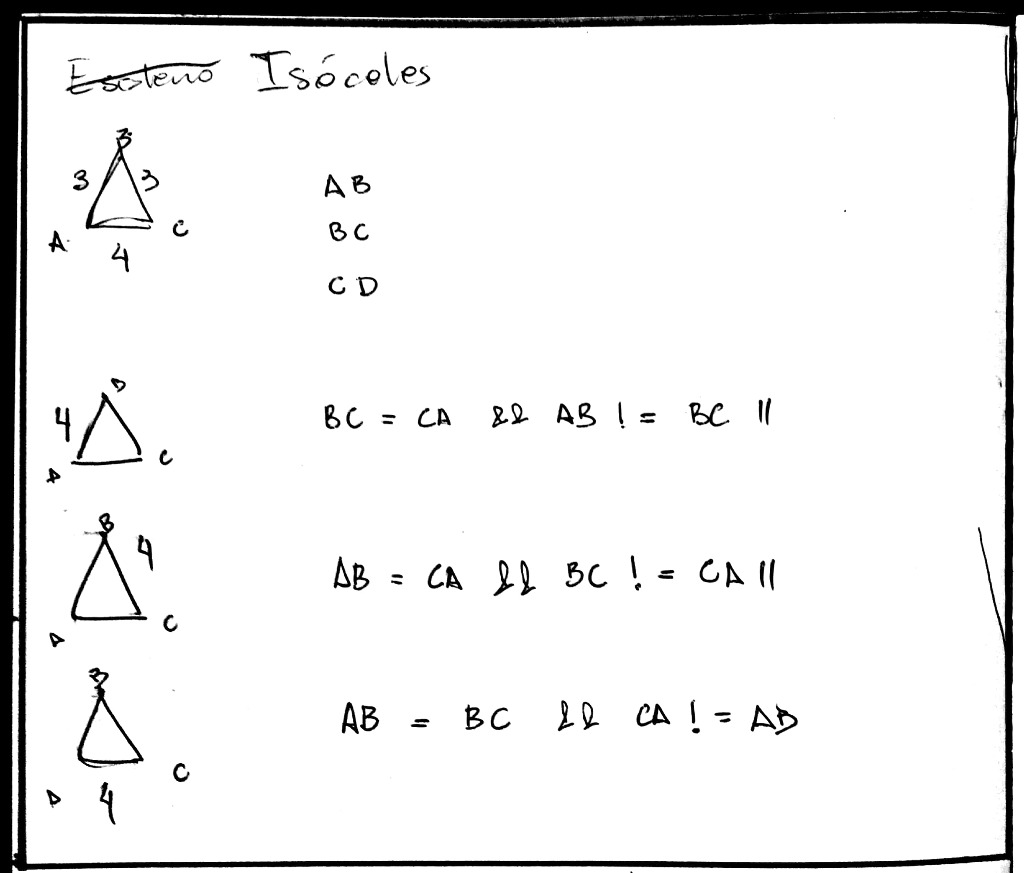 Escaleno Isóceles
B
3 3
A C
4
AB
BC
CD
B
4
A C
BC = CA && AB != BC ||
B
4
A C
AB = CA && BC != CA ||
B
A C
4
AB = BC && CA != AB